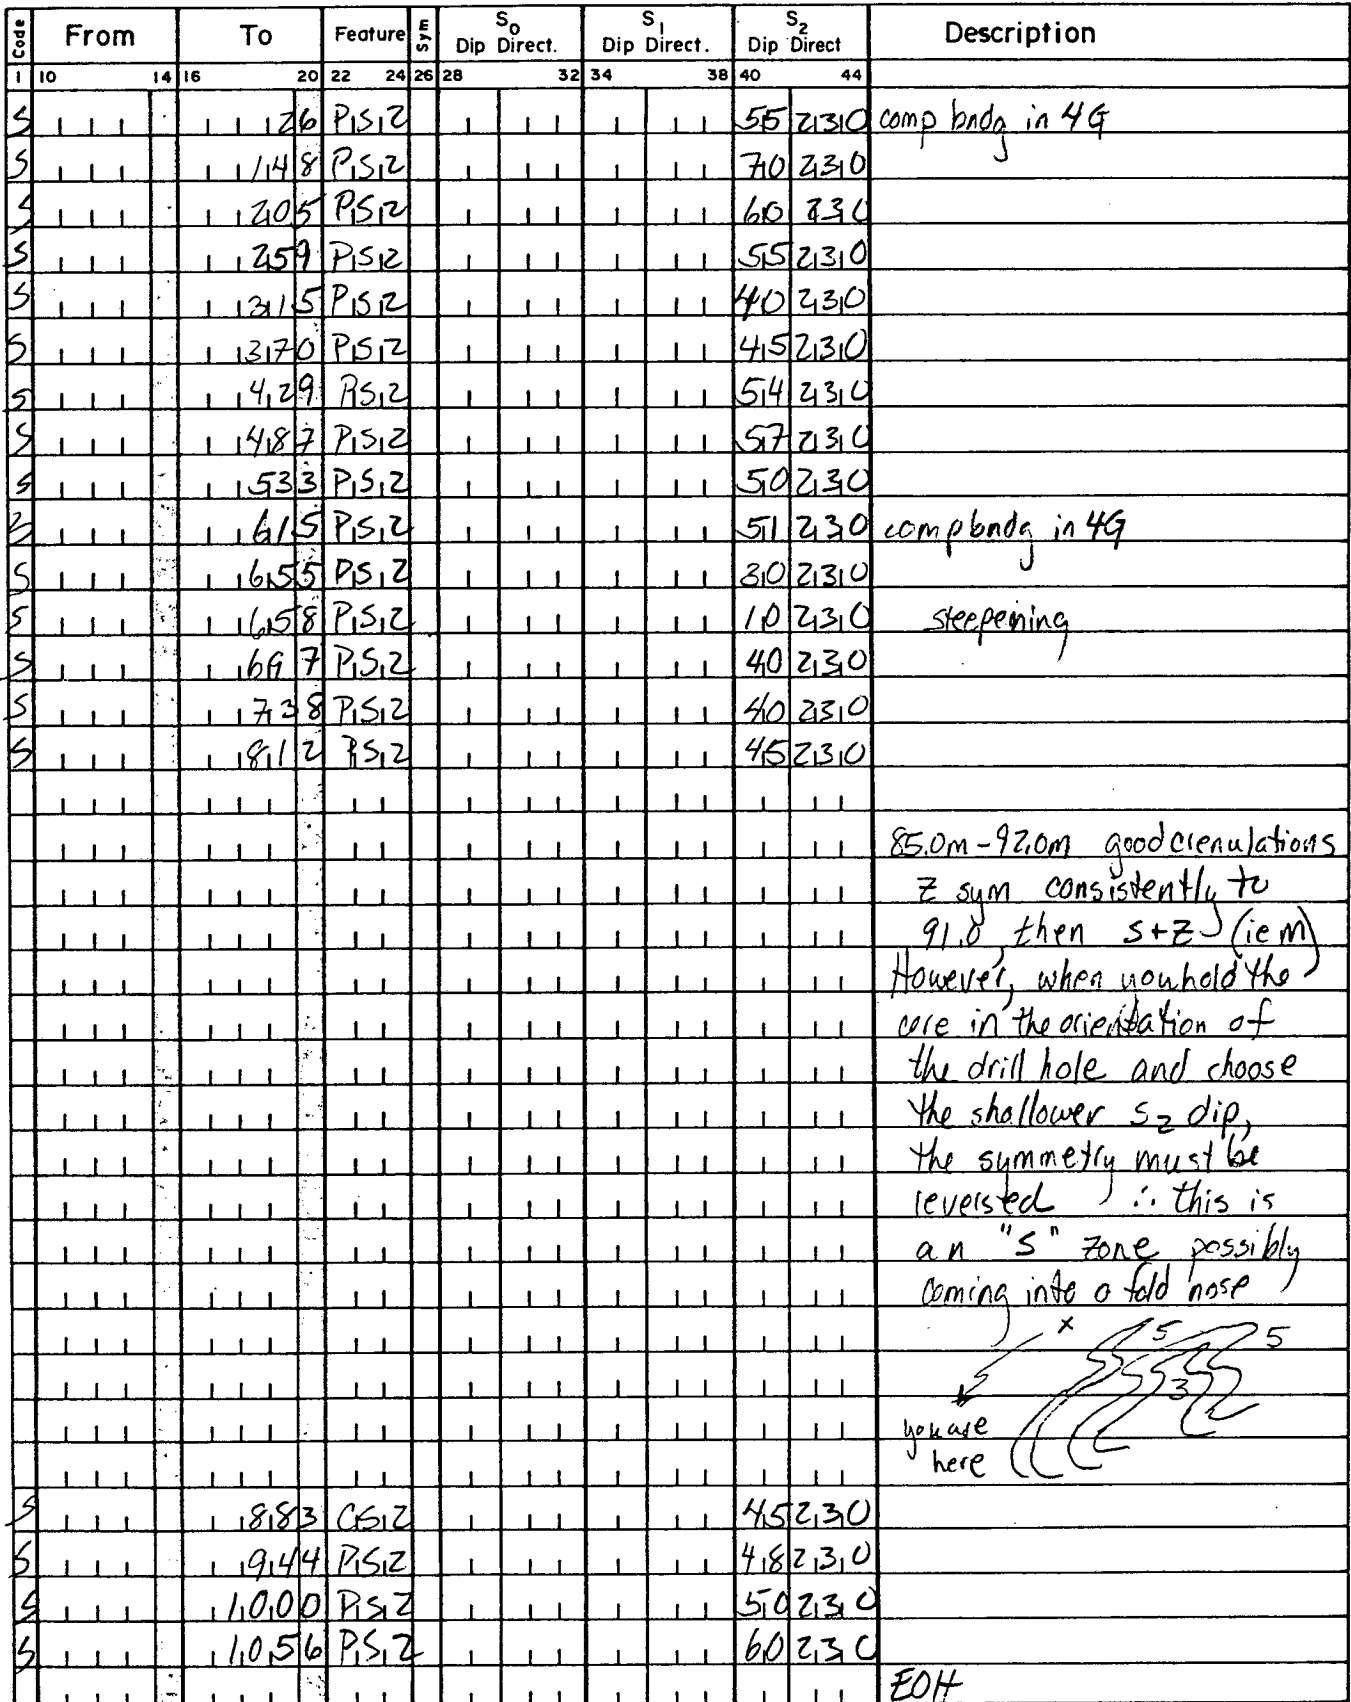 Code From To Feature Sym S0 Dip Direct. S1 Dip Direct. S2 Dip Direct Description
1 10 14 16 20 22 24 26 28 32 34 38 40 44
S 26 PS2 55 230 comp bndg in 4G
S 148 PS2 70 230
S 205 PS2 60 230
S 259 PS2 55 230
S 315 PS2 40 230
S 370 PS2 45 230
S 429 PS2 54 230
S 487 PS2 57 230
S 533 PS2 50 230
S 615 PS2 51 230 comp bndg in 4G
S 655 PS2 30 230
S 658 PS2 10 230 steepening
S 697 PS2 40 230
S 738 PS2 40 230
S 812 PS2 45 230
85.0m-92.0m good crenulations
Z sym consistently to
91.0, then S+Z (ie M)
However, when you hold the
core in the orientation of
the drill hole and choose
the shallower S2 dip,
the symmetry must be
reversed ∴ this is
an "S" zone possibly
coming into a fold nose
x 5 5
3
you are
here
S 883 CS2 45 230
S 944 PS2 48 230
S 1000 PS2 50 230
S 1056 PS2 60 230
EOH